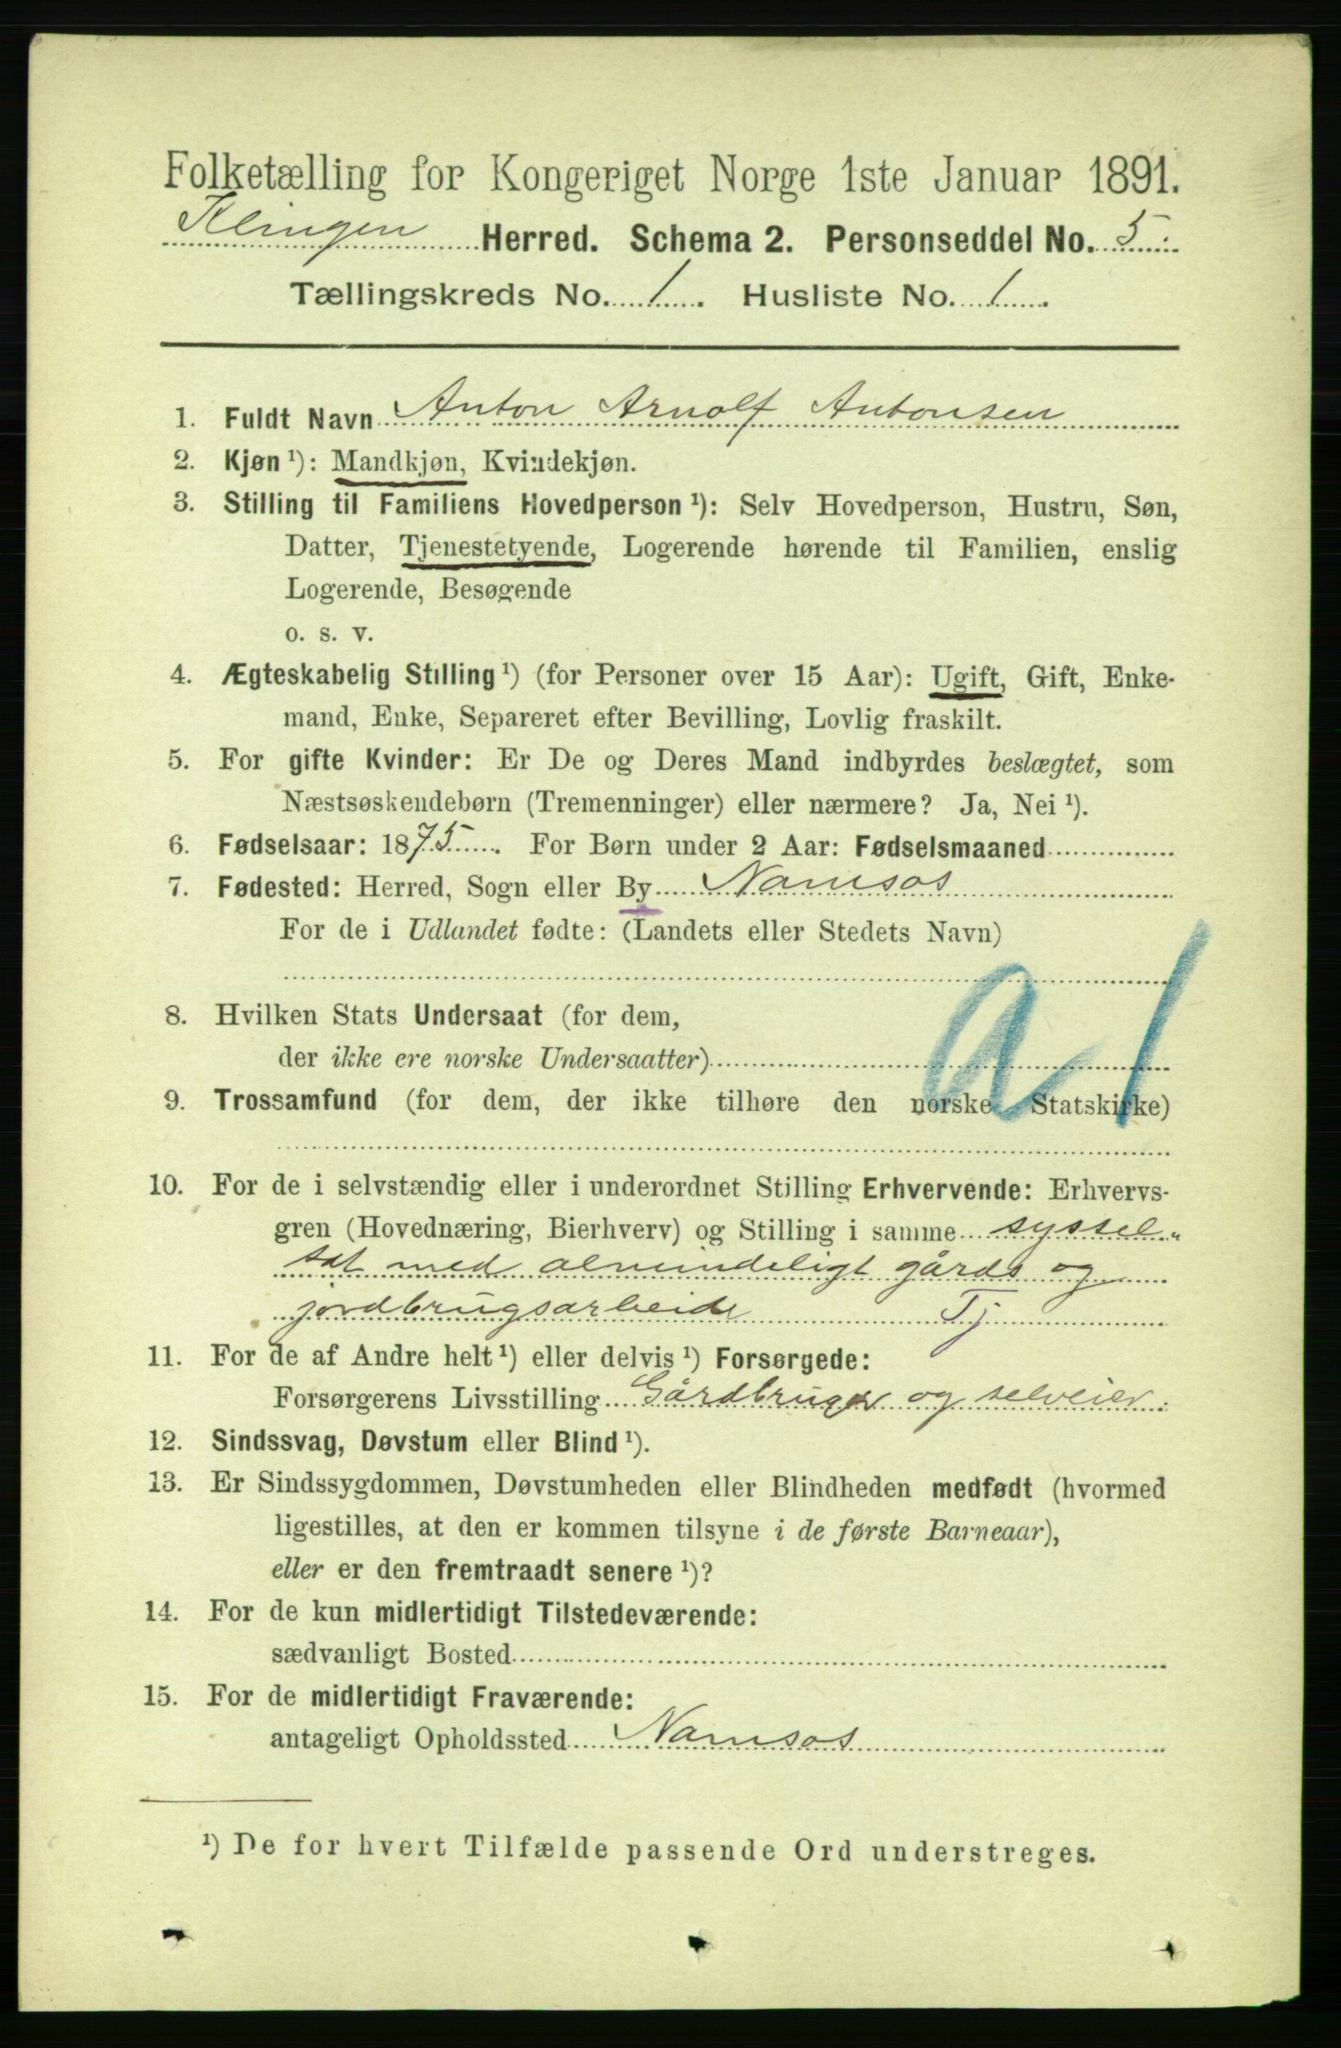 Folketælling for Kongeriget Norge 1ste Januar 1891.
Klingen Herred. Schema 2. Personseddel No. 5.
Tællingskreds No. 1. Husliste No. 1.
1. Fuldt Navn Anton Arnolf Antonsen
2. Kjøn ¹): Mandkjøn, Kvindekjøn.
3. Stilling til Familiens Hovedperson ¹): Selv Hovedperson, Hustru, Søn,
Datter, Tjenestetyende, Logerende hørende til Familien, enslig
Logerende, Besøgende
o. s. v.
4. Ægteskabelig Stilling ¹) (for Personer over 15 Aar): Ugift, Gift, Enke-
mand, Enke, Separeret efter Bevilling, Lovlig fraskilt.
5. For gifte Kvinder: Er De og Deres Mand indbyrdes beslægtet, som
Næstsøskendebørn (Tremenninger) eller nærmere? Ja, Nei ¹).
6. Fødselsaar: 1875. For Børn under 2 Aar: Fødselsmaaned
7. Fødested: Herred, Sogn eller By Namsos
For de i Udlandet fødte: (Landets eller Stedets Navn)
a 1
8. Hvilken Stats Undersaat (for dem,
der ikke ere norske Undersaatter)
9. Trossamfund (for dem, der ikke tilhøre den norske Statskirke)
10. For de i selvstændig eller i underordnet Stilling Erhvervende: Erhvervs-
gren (Hovednæring, Bierhverv) og Stilling i samme syssel-
sat med almindeligt gårds og
jordbrugsarbeide Tj
11. For de af Andre helt ¹) eller delvis ¹) Forsørgede:
Forsørgerens Livsstilling Gårdbruger og selveier.
12. Sindssvag, Døvstum eller Blind ¹).
13. Er Sindssygdommen, Døvstumheden eller Blindheden medfødt (hvormed
ligestilles, at den er kommen tilsyne i de første Barneaar),
eller er den fremtraadt senere ¹)?
14. For de kun midlertidigt Tilstedeværende:
sædvanligt Bosted
15. For de midlertidigt Fraværende:
antageligt Opholdssted Namsos
¹) De for hvert Tilfælde passende Ord understreges.